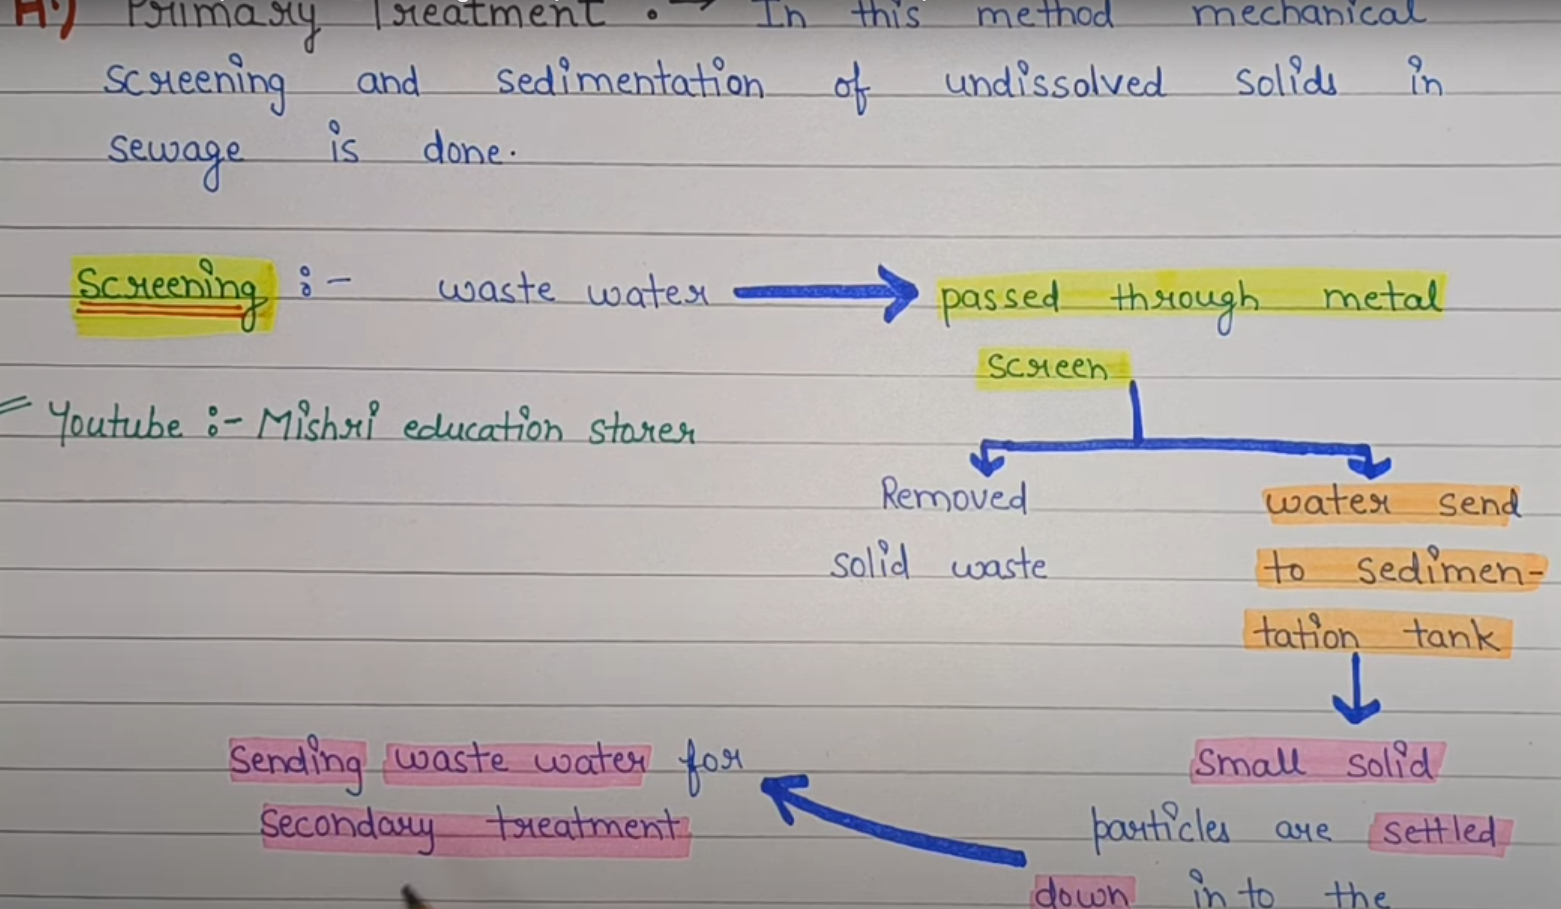 A.) Primary Treatment :→ In this method mechanical
screening and sedimentation of undissolved solids in
sewage is done.
Screening :- waste water → passed through metal
screen
Youtube :- Mishri education storer
Removed water send
solid waste to sedimen-
tation tank
small solid
particles are settled
down in to the
Sending waste water for
secondary treatment